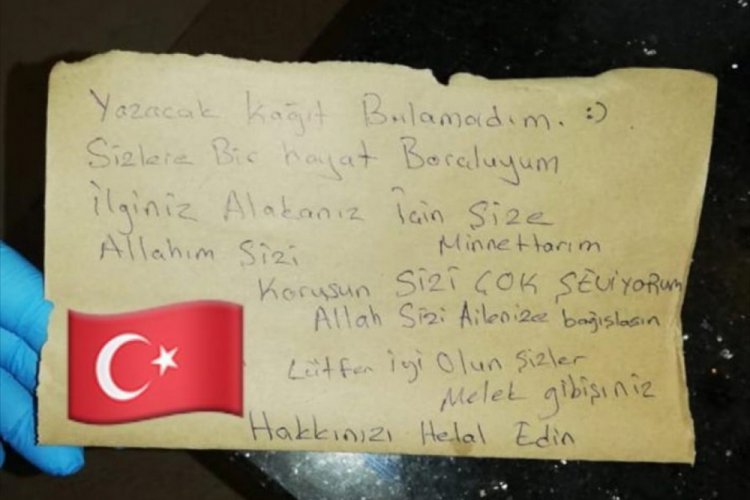 Yazacak Kağıt Bulamadım. :)
Sizlere Bir hayat Borcluyum
İlginiz Alakanız İçin Size
Allahım Sizi Minnettarım
Korusun Sizi ÇOK ŞEViYORUM
Allah Sizi Ailenize bağışlasın
Lütfen İyi Olun Sizler
Melek gibisiniz
Hakkınızı Helal Edin